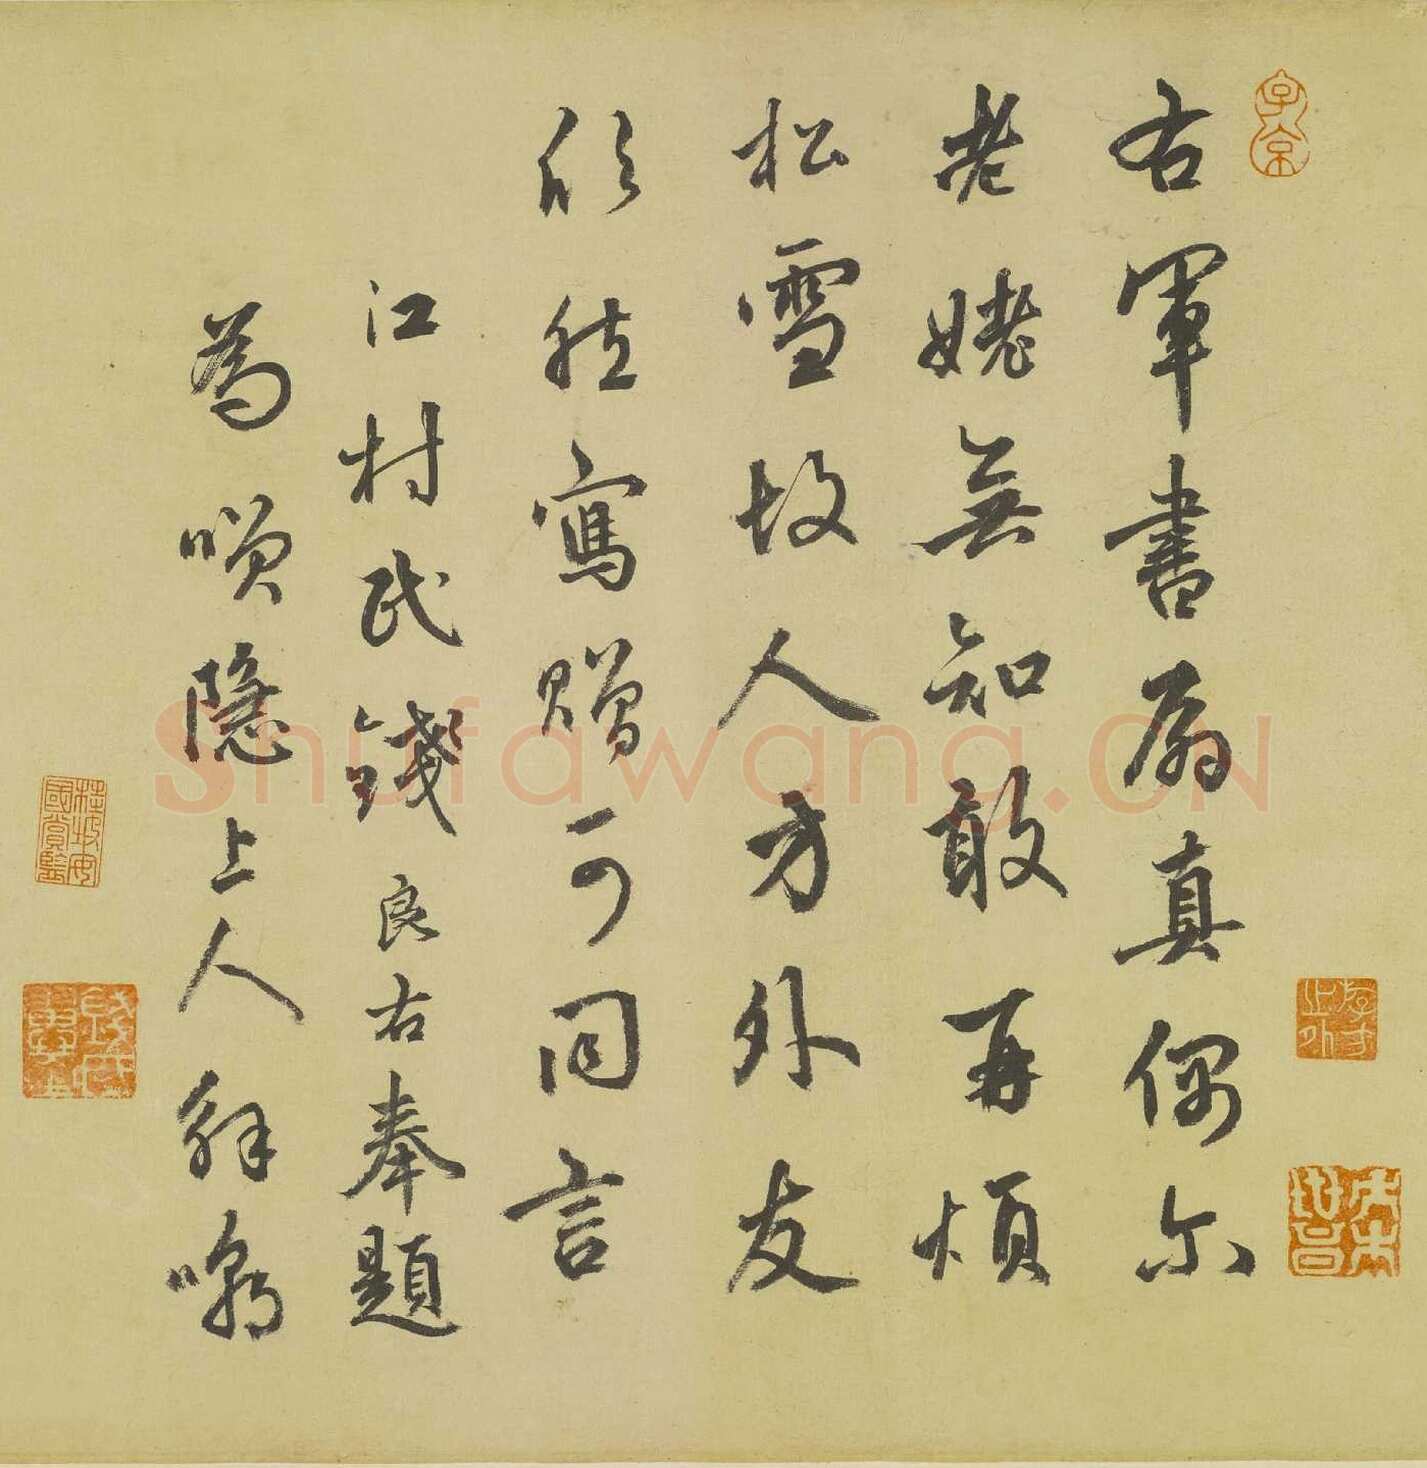 右軍書扇真偶尔
老姥無知敢再煩
松雪故人方外友
欣然寫贈可同言
江村民錢良右奉題
為嘿隱上人解嘲
子京
Shufawang.CN